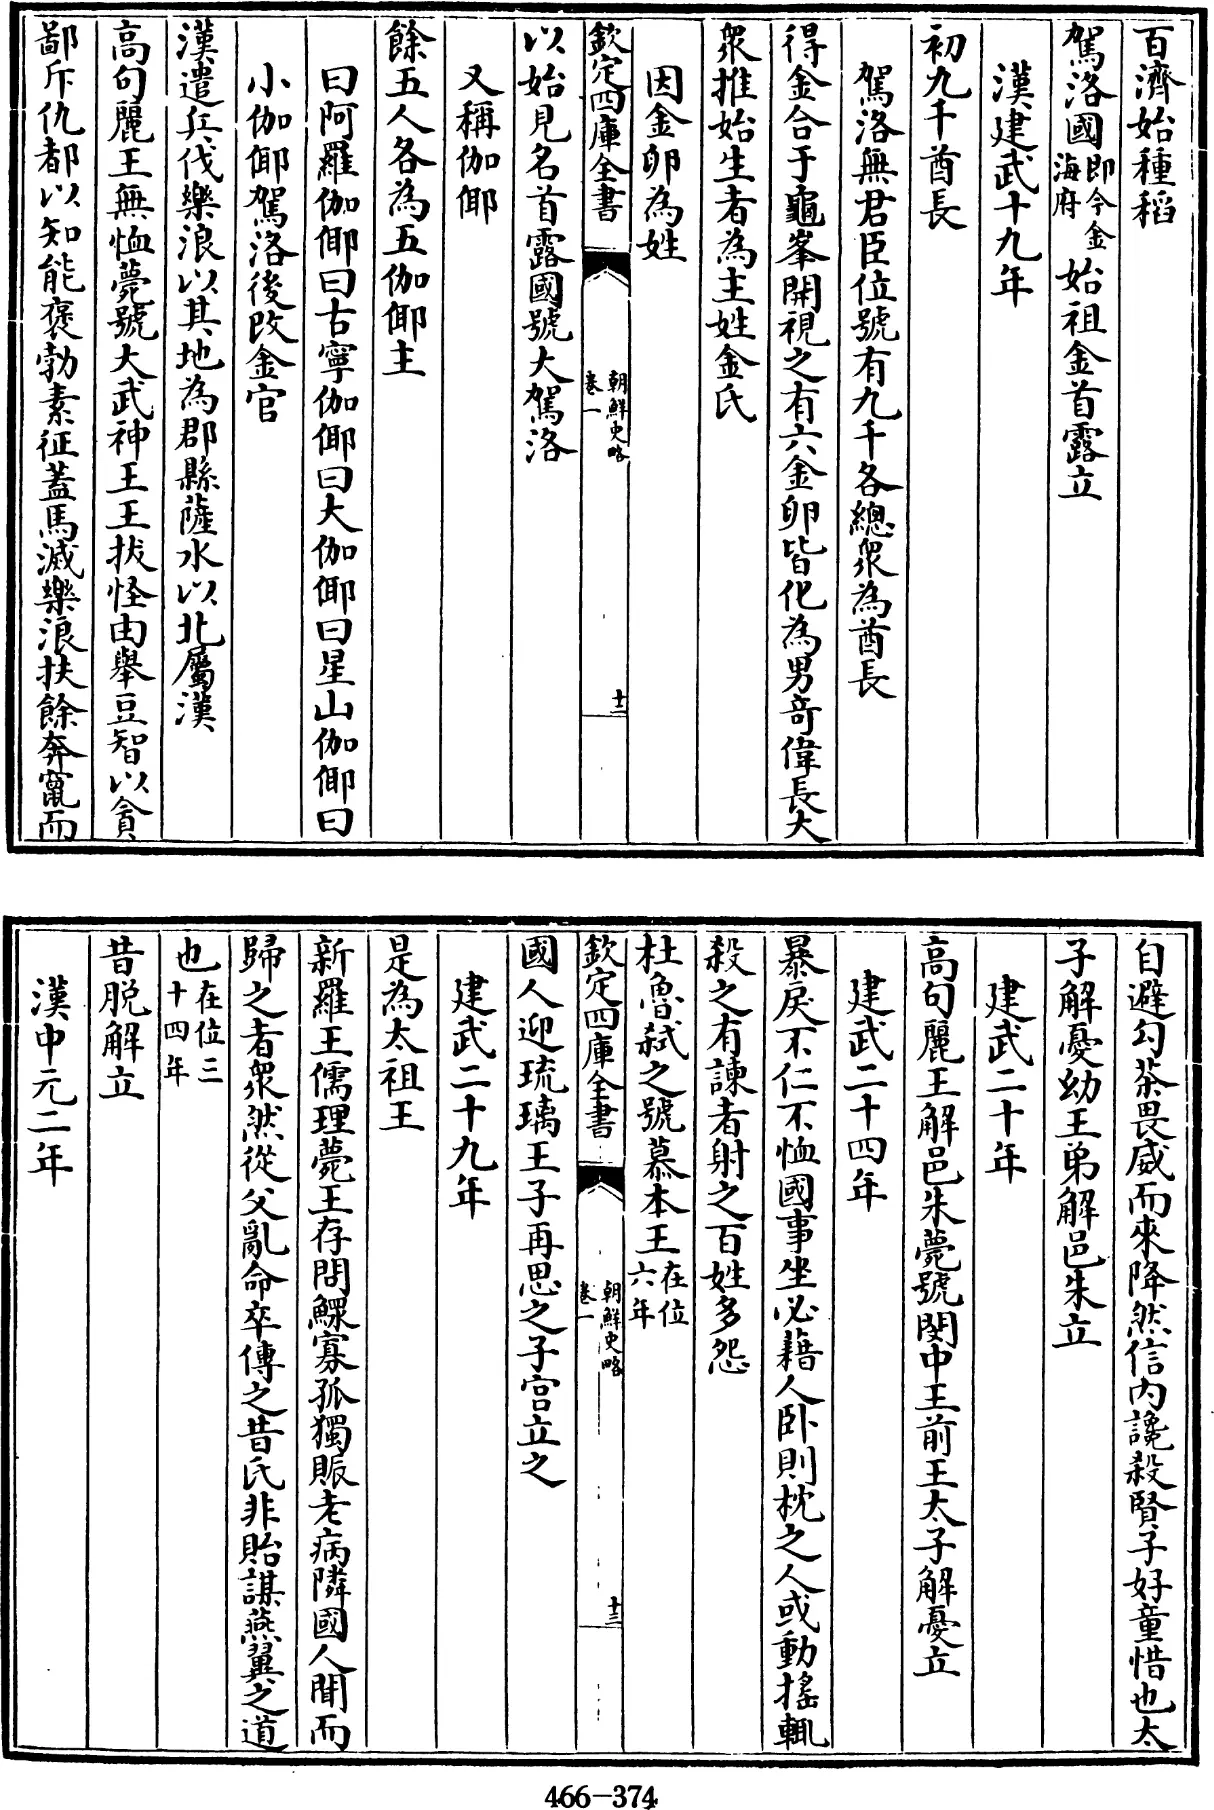 百濟始種稻
駕洛國即今金海府始祖金首露立
漢建武十九年
初九千酋長
駕洛無君臣位號有九千各總衆為酋長
得金合于龜峯開視之有六金卵皆化為男奇偉長大
衆推始生者為主姓金氏
因金卵為姓
欽定四庫全書
朝鮮史略
卷一
十二
以始見名首露國號大駕洛
又稱伽倻
餘五人各為五伽倻主
曰阿羅伽倻曰古寧伽倻曰大伽倻曰星山伽倻曰
小伽倻駕洛後改金官
漢遣兵伐樂浪以其地為郡縣薩水以北屬漢
高句麗王無恤薨號大武神王王拔怪由舉豆智以貪
鄙斥仇都以知能褒勃素征蓋馬滅樂浪扶餘奔竄而
自避勾茶畏威而來降然信内讒殺賢子好童惜也太
子解憂幼王弟解邑朱立
建武二十年
高句麗王解邑朱薨號閔中王前王太子解憂立
建武二十四年
暴戾不仁不恤國事坐必藉人卧則枕之人或動搖輒
殺之有諫者射之百姓多怨
杜魯弒之號慕本王在位六年
欽定四庫全書
朝鮮史略
卷一
十三
國人迎琉璃王子再思之子宫立之
建武二十九年
是為太祖王
新羅王儒理薨王存問鰥寡孤獨賑老病隣國人聞而
歸之者衆然從父亂命卒傳之昔氏非貽謀燕翼之道
也在位三十四年
昔脱解立
漢中元二年
466-374